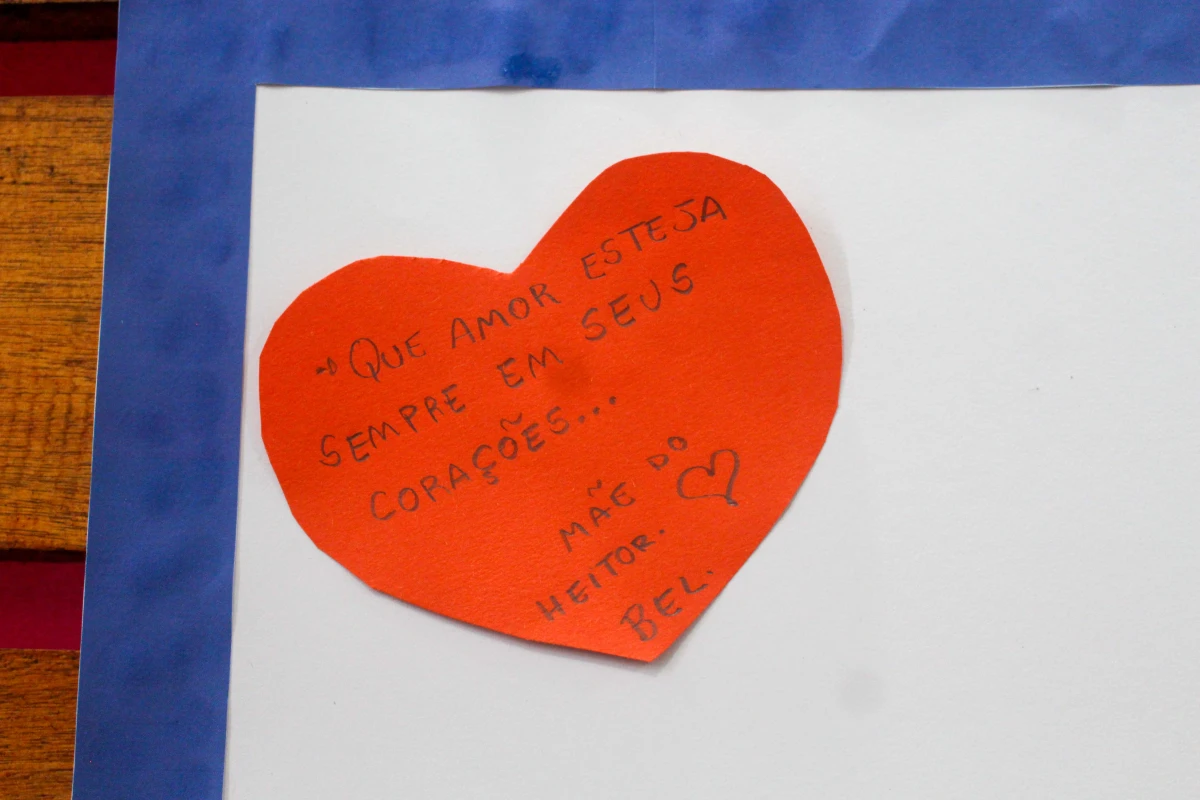 → QUE AMOR ESTEJA
SEMPRE EM SEUS
CORAÇÕES...
MÃE DO
HEITOR.
BEL.